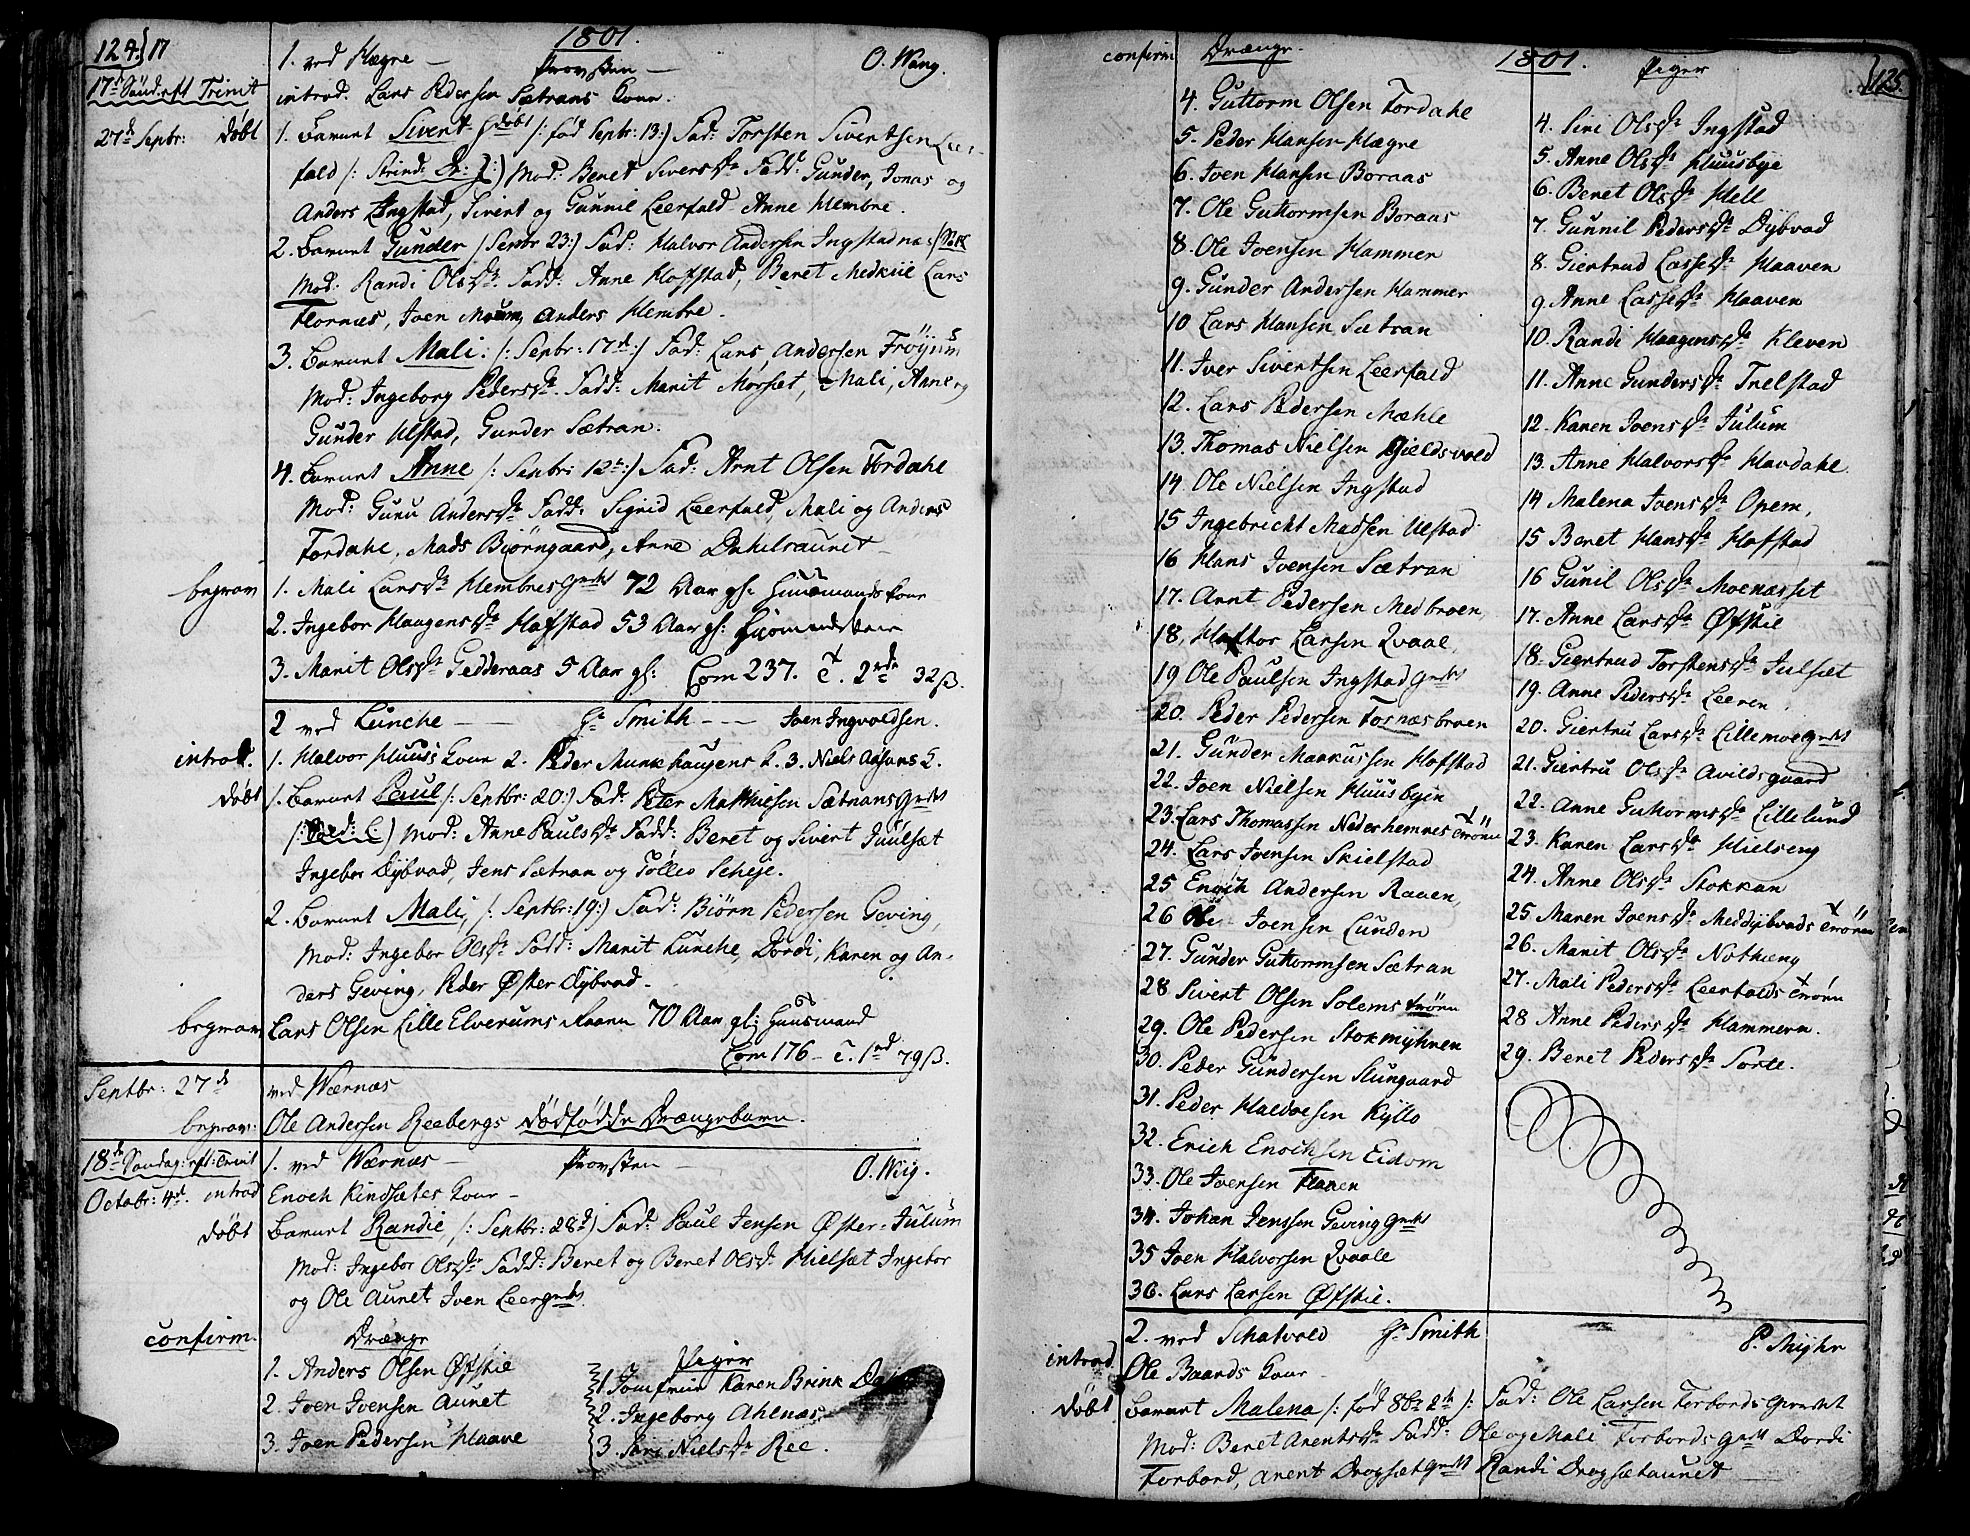 124. 17
1801.
1. ved Hægre — Provsten — O. Wang.
17d Sønd. eft Trinit
introd. Lars Pedersen Sætrans Kone.
27d Septbr: døbt
1. Barnet Sivert døbt /: fød Septbr: 13:/ Fad: Torsten Sivertsen Leer-
fald /: Strind: /: Mod: Beret Siversdr Fadd: Gunder, Jonas og
Anders Ingstad, Sivert og Gunnil Leerfald Anne Hembre.
2. Barnet Gunder /: Septbr 23:/ Fad: Halvor Andersen Ingstadnæs
Mod: Randi Olsdr. Fadd: Anne Hofstad, Beret Medkiil Lars
Flornæs, Joen Moum, Anders Hembre.
3. Barnet Mali: /: Septbr: 17d:/ Fad: Lars Andersen Frøÿsum
Mod: Ingeborg Pedersdr. Fadd: Marit Morset, Mali, Anne og
Gunder Ulstad, Gunder Sætran.
4. Barnet Anne /: Septbr: 12t:/ Fad: Arnt Olsen Fordahl
Mod: Guru Andersdr Fadd: Sigrid Leerfald, Mali og Anders
Fordahl, Mads Biørngaard, Anne Dahlsaunet
begrav. 1. Mali Larsdr Hembres 72 Aar gl: Huusmandskone
2. Ingebor Haagensdr Hofstad 53 Aar gl:
3. Marit Olsdr Gedderaas 5 Aar gl: Com 237. T. 2rd 32ß.
2 ved Lunche — Hr Smith — Joen Ingvoldsen.
introd. 1. Halvor Huuses Kone 2. Peder Munkhaugens K. 3. Niels Aasans K.
døbt 1. Barnet Paul /: Septbr: 20:/ Fad: Peter Mathiesen Sætrans
Mod: Anne Paulsdr Fadd: Beret og Sivert Juulsæt
Ingebor Dÿbvad, Jens Sætran og Tolleo Scheje.
2. Barnet Mali, /: Septbr: 19:/ Fad: Biørn Pedersen Geving,
Mod: Ingebor Olsdr Fadd: Marit Lunche, Dordi, Karen og An-
ders Geving, Peder Øfster Dÿbvad.
begrav. Lars Olsen Lille Elverums 70 Aar gl: Huusmand
Com 176 — T. 1rd 79ß.
Septbr: 27d ved Wærnæs
begrav: Ole Andersen Reebergs dødfødde Drængebarn.
18d Søndag: eft: Trinit 1. ved Wærnæs — Provsten — O. Wiig.
Octobr: 4d. introd Enoch Kindsætes Kone —
døbt Barnet Randie /: Septbr: 28d:/ Fad: Paul Jensen Øfster-Julum
Mod: Ingebor Olsdr Fadd: Beret og Beret Olsdr Hielsæt Ingebor
og Ole Aunet Joen Leer
confirm. Drænge
1. Anders Olsen Øfstie
2. Joen Joensen Aunet
3. Joen Pedersen Haave
Piger
1 Jomfrue Karen Brink
2. Ingeborg Ahlnæs
3. Siri Nielsdr Ree.
125.
1801.
confirm Drænge.
4. Guttorm Olsen Fordahl
5. Peder Hansen Hægre
6. Joen Hansen Boraas
7. Ole Guttormsen Boraas
8. Ole Joensen Hammer
9. Gunder Andersen Hammer
10 Lars Hansen Sætran
11. Iver Sivertsen Leerfald
12. Lars Pedersen Mæhle
13. Thomas Nielsen Gieldsvold
14. Ole Nielsen Ingstad
15 Ingebricht Madsen Ulstad
16 Hans Joensen Sætran
17. Arnt Pedersen Medbroen,
18, Haftor Larsen Qvaal,
19 Ole Paulsen Ingstad
20. Peder Pedersen Fornæsbroen
21. Gunder Markussen Hofstad
22. Joen Nielsen Huusbÿen
23. Lars Thomassen Nederhemnes
24. Lars Joensen Skielstad
25 Enoch Andersen Raaen,
26 Ole Joensen Lunden
27. Gunder Guttormsen Sætran
28 Sivert Olsen Solems
29. Ole Pedersen Stokmÿhren
30. Peder Gundersen Slungaard
31. Peder Haldosen Kÿllo
32. Erich Enochsen Eidom
33. Ole Joensen Flaaen
34. Johan Jenssen Geving
35 Joen Halvorsen Qvaale
36. Lars Larsen Øfstie.
Piger
4. Siri Olsdr Ingstad
5. Anne Olsdr Huusbye
6. Beret Olsdr Hell
7. Gunnil Pedersdr Dÿbvad
8. Giertrud Lassesdr Haaven
9. Anne Lassesdr Haaven
10. Randi Haagensdr Kleven
11. Anne Gundersdr Trelstad
12. Karen Joensdr Julum
13. Anne Halvorsdr Havdahl
14 Malena Joensdr Opem,
15 Beret Hansdr Hofstad
16 Gunil Olsdr Moenæsset
17. Anne Larsdr Øfstie
18. Giertrud Torstensdr Julsæt
19. Anne Pedersdr Leeren
20. Giertru Larsdr Lillemoe
21. Giertru Olsdr Avildsgaard
22. Anne Guttormsdr Lillelund
23. Karen Larsdr Hielseng
24. Anne Olsdr Stokkan
25. Maren Joensdr Meddÿbvads
26. Marit Olsdr Nothæng
27. Mali Pedersdr Leerfalds
28 Anne Pedersdr Hammern.
29. Beret Pedersdr Sorte.
2. ved Schatvold Hr Smith P. Mÿhr
introd. Ole Baards Kone
døbt Barnet Malena /: fød 8br 2d :/ Fad: Ole Larsen Forbords
Mod: Beret Arentsdr Fadd: Ole og Mali Forbords Dordi
Forbord, Arent Drogsæt Randi Drogsætaunet